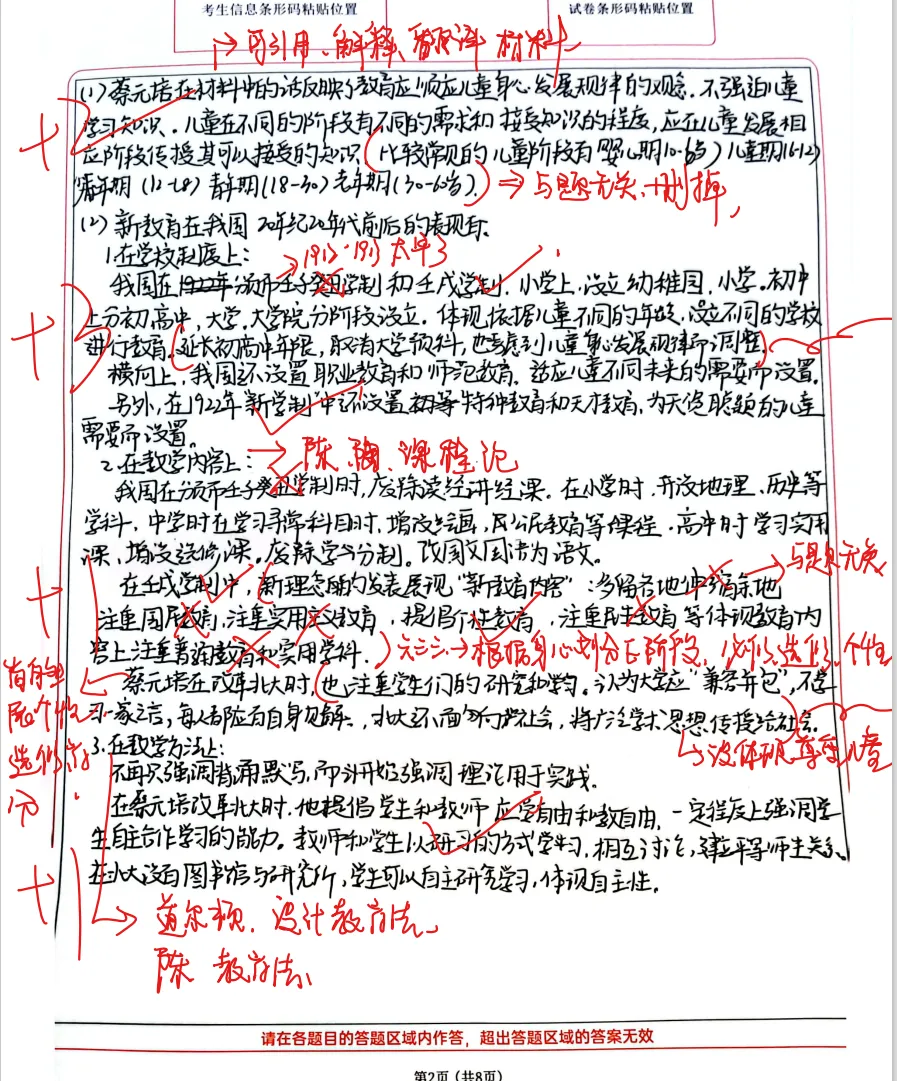 考生信息条形码粘贴位置
试卷条形码粘贴位置
→可引用、解释、翻译材料
(1)蔡元培在材料中的话反映了教育应顺应儿童身心发展规律的观念。不强迫儿童
+2
学习知识。儿童在不同的阶段有不同的需求和接受知识的程度,应在儿童发展相
应阶段传授其可以接受的知识。(比较常规的儿童阶段有婴儿期(0-6岁)儿童期(6-12)
青年期(18-30)老年期(30-60岁).)⇒与题无关,删掉,
(2)新教育在我国20年纪20年代前后的表现有:
1.在学校制度上:
→1912-1913太早了
我国在1922年颁布壬子癸丑学制和壬戌学制,小学上,设立幼稚园,小学。初中
+3
上分初高中,大学,大学院分阶段设立。体现依据儿童不同的年龄,设立不同的学校
进行教育。延长初高中年限,取消大学预科,也考虑到儿童身心发展规律所调整。
横向上,我国还设置职业教育和师范教育。适应儿童不同未来的需要而设置。
另外,在1922年"新学制"中还设置初等特种教育和天才教育,为天资聪颖的儿童
需要而设置。
2.在教学内容上:→陈、陶、课程论
我国在颁布壬子癸丑学制时,废除读经讲经课。在小学时,开设地理、历史等
学科,中学时在学习寻常科目时,增设绘画,民公民教育等课程。高中时学习实用
课,增设选修课。废除学分制。改国文国语为语文。
在壬戌学制中,新理念的发表展现"新教育内容":多留各地伸缩余地
→与题无关
+1
注重国民教育,注重实用主义教育,提倡个性教育,注重
教育等体现教育内
容上注重普通教育和实用学科.)六三三→根据身心划分三阶段,必修、选修、个性
蔡元培在改革北大时,也注重学生们的研究和学习。认为大学应"兼容并包",不学
习一家之言,每人都应有自身见解。北大还面向社会,将广泛学术思想传授给社会。
→没体现尊重儿童
3.在教学方法上:
不再只强调背诵默写,而开始强调理论用于实践。
在蔡元培改革北大时,他提倡学生和教师应学自由和教自由,一定程度上强调学
生自主合作学习的能力。教师和学生以研习的方式学习,相互讨论,建立平等师生关系。
+1
在北大设有图书馆与研究所,学生可以自主研究学习,体现自主性。
→道尔顿、设计教学法、
陈 教学法、
请在各题目的答题区域内作答,超出答题区域的答案无效
第2页(共8页)